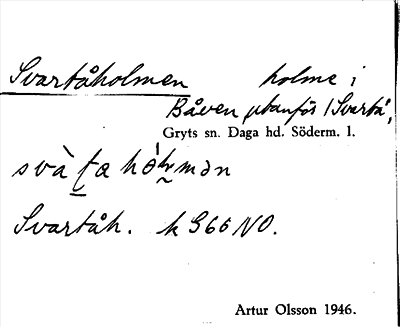 Svartåholmen holme i
Båven utanför Svartå,
Gryts sn. Daga hd. Söderm. l.
Svartåh. k 966 NO.
Artur Olsson 1946.